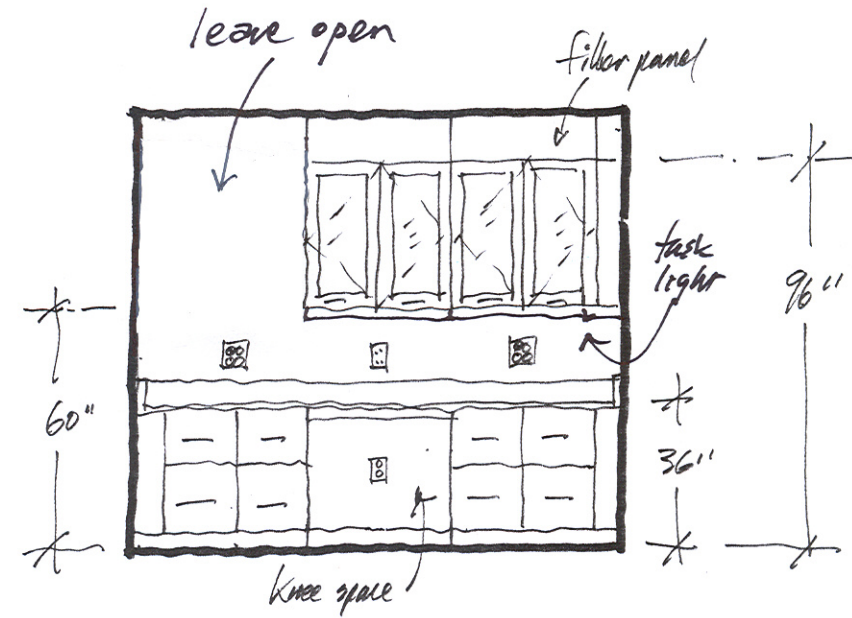 leave open
filler panel
task
light
96"
60"
36"
Knee space